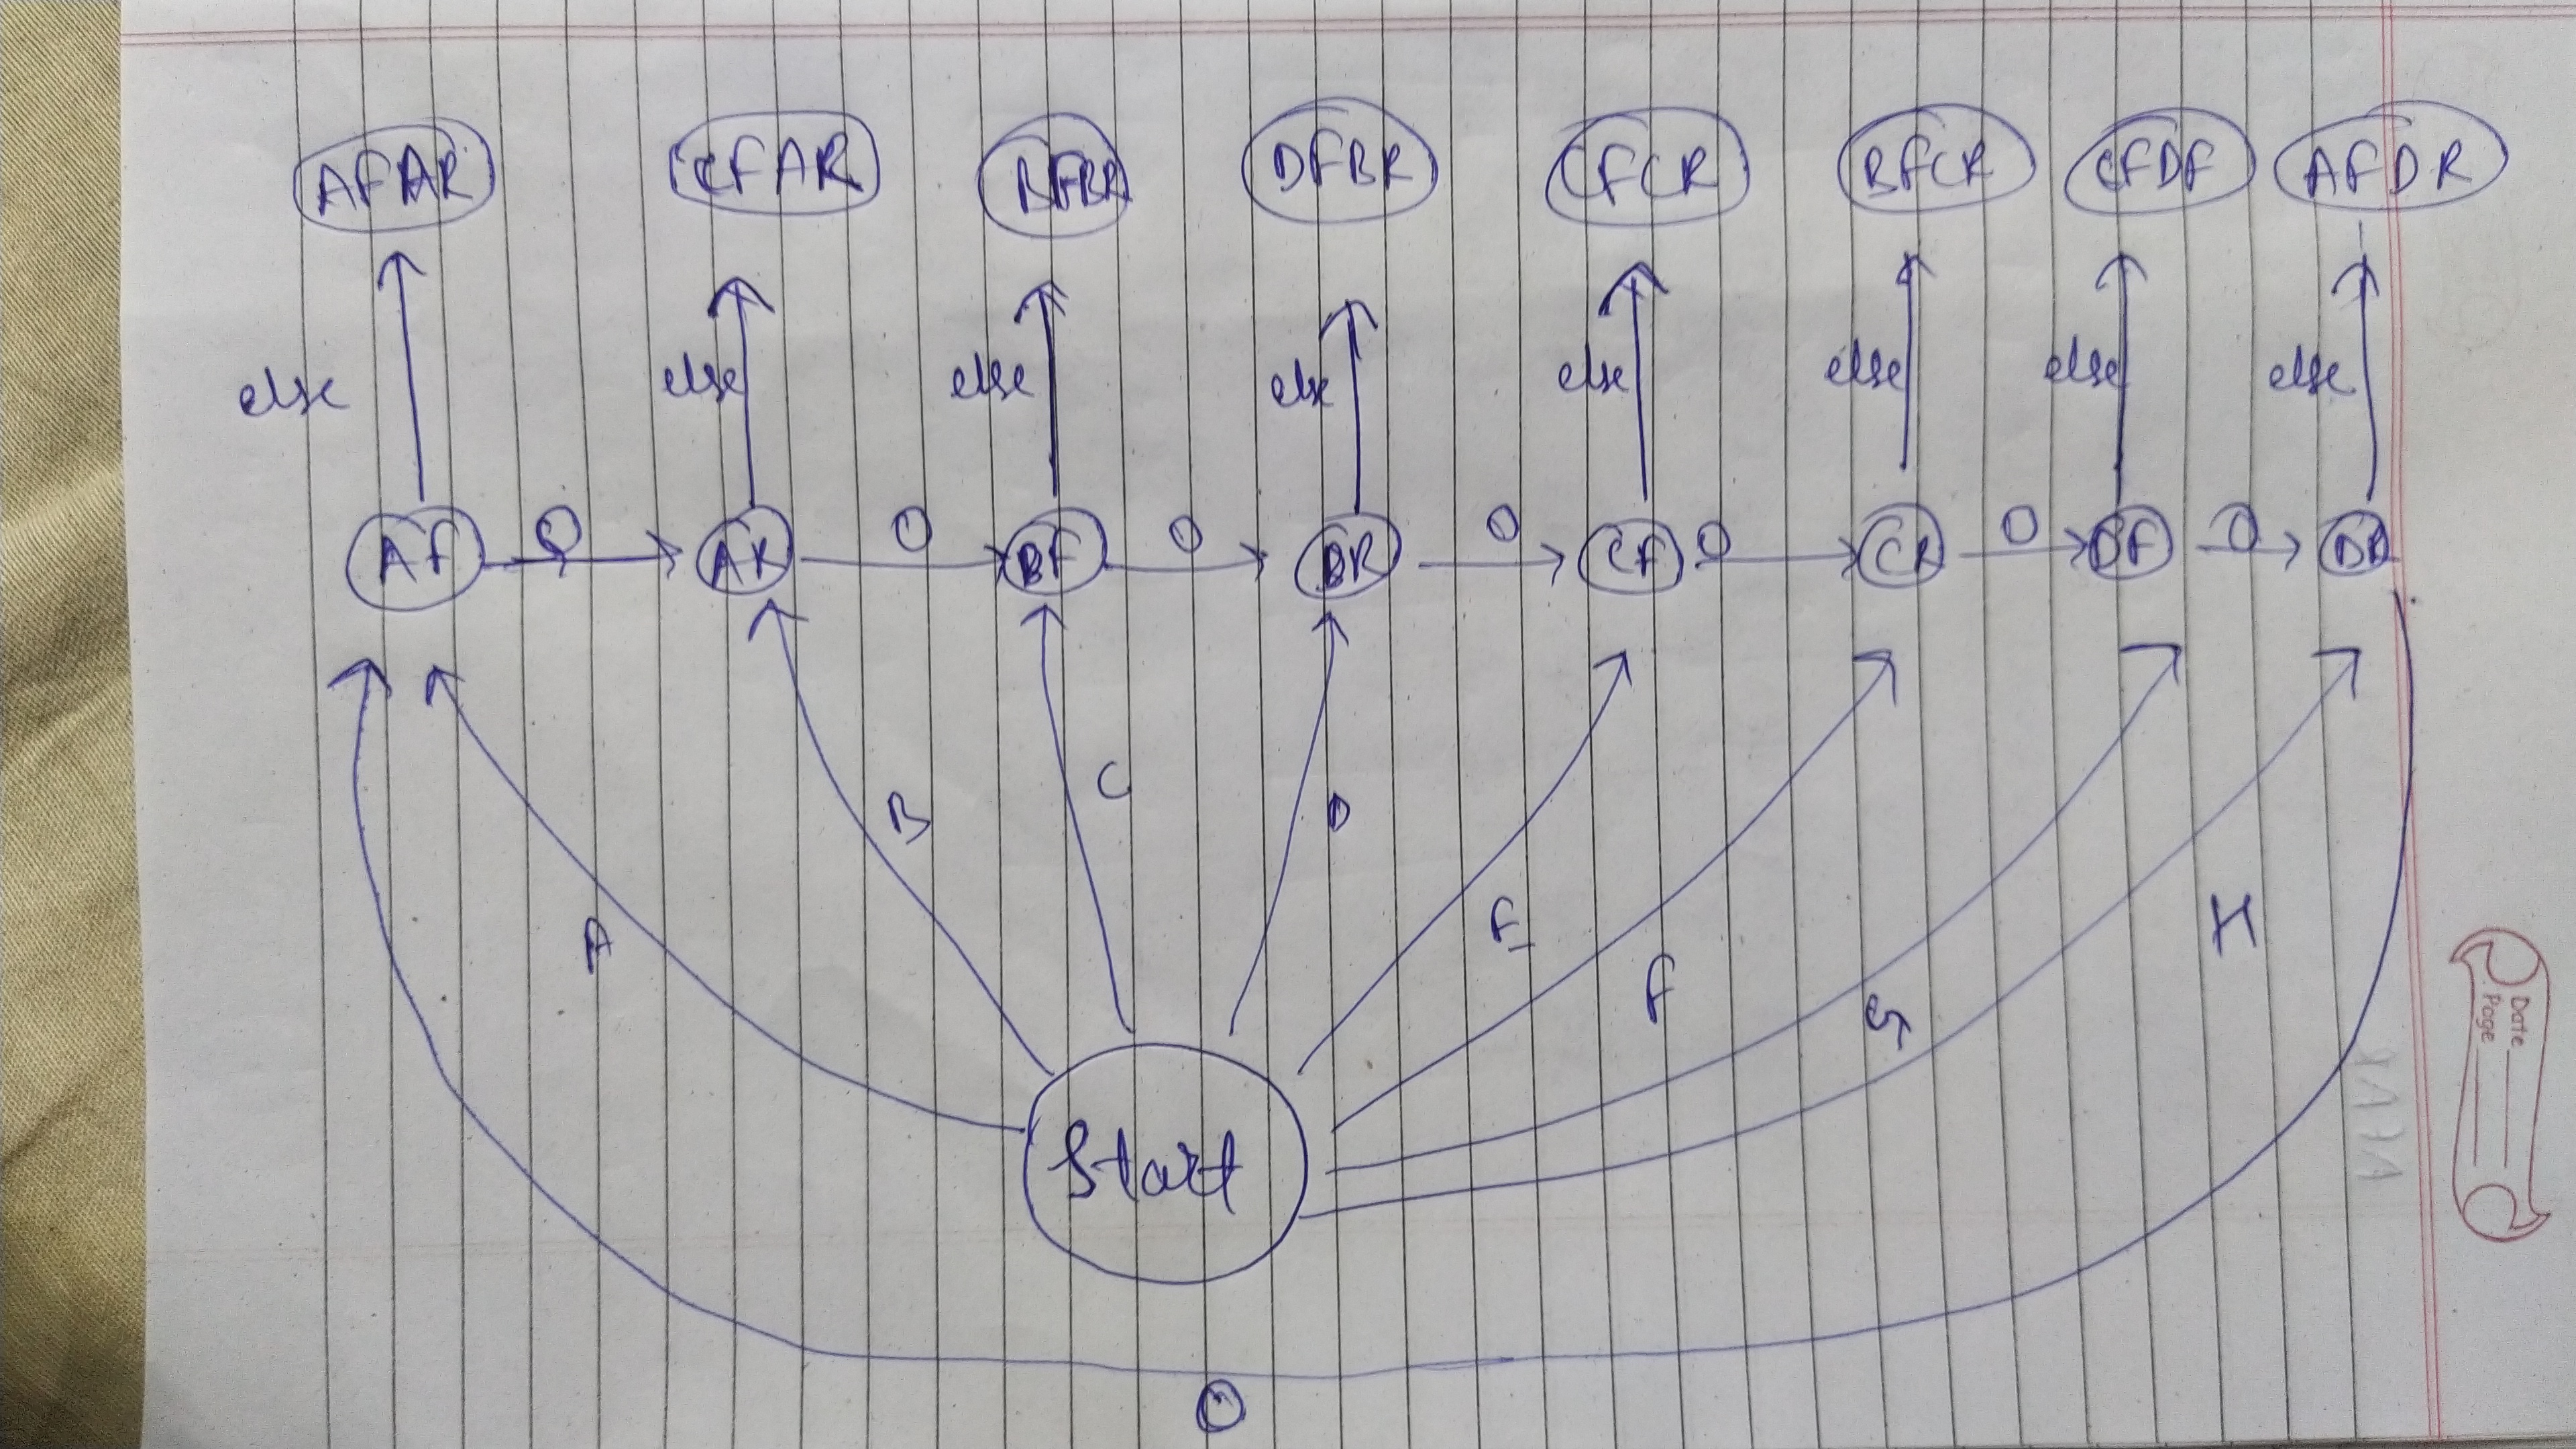 AFAR CFAR BFBR DFBR CFCR BFCR CFDF AFDR
else else else else else else else else
AF O AR O BF O BR O CF O CR O DF O DR
A B C D E F G H
Start
O
Date
Page